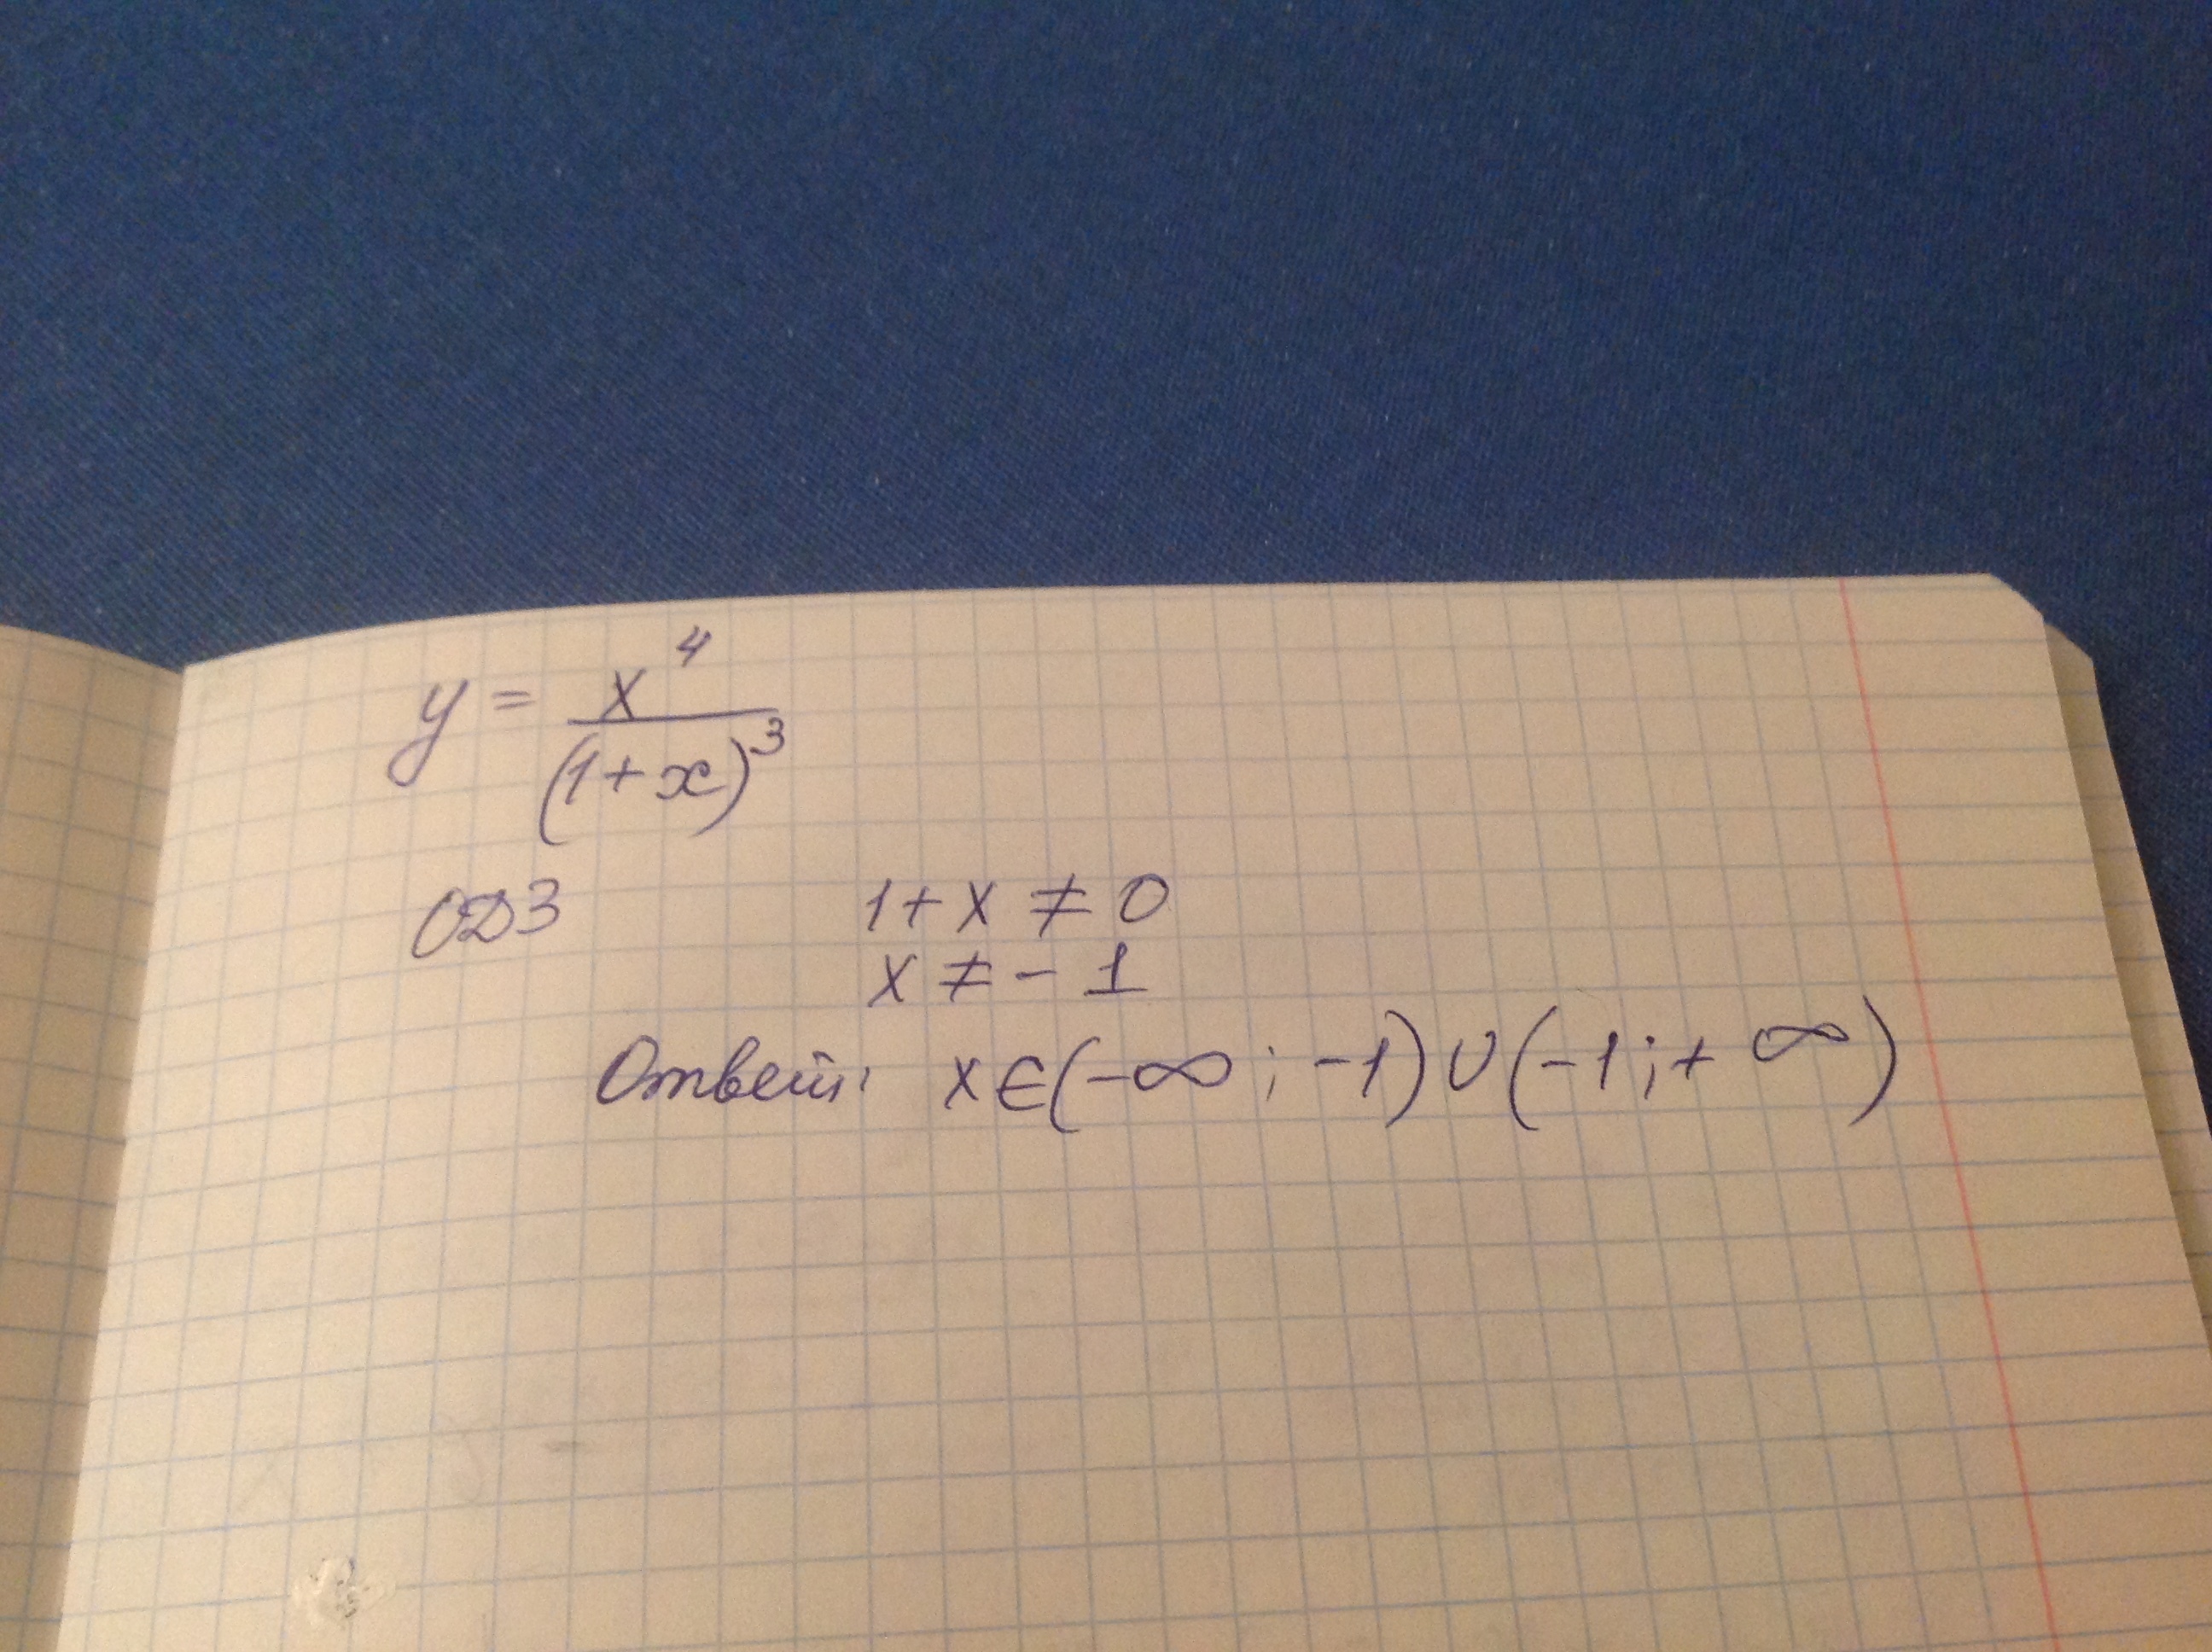 y = x⁴/(1+x)³
ОДЗ 1+x ≠ 0
x ≠ -1
Ответ: x∈(-∞; -1)∪(-1;+∞)